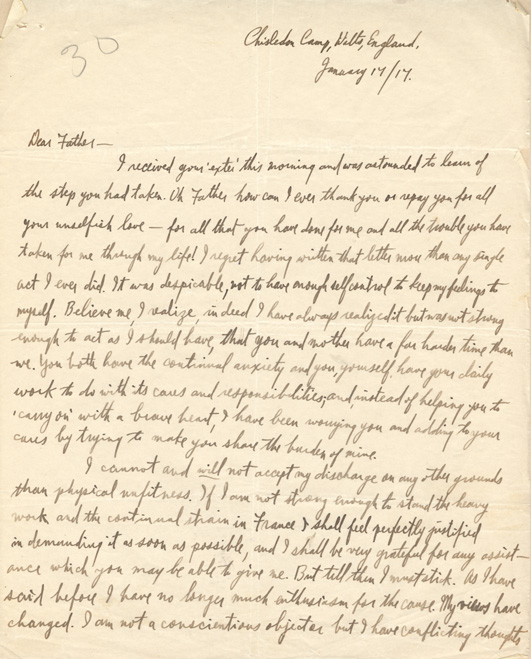 30
Chisledon Camp, Wilts, England.
January 17/17.
Dear Father —
I received your 'exter' this morning and was astounded to learn of
the step you had taken. Oh Father how can I ever thank you or repay you for all
your unselfish love — for all that you have done for me and all the trouble you have
taken for me through my life! I regret having written that letter more than any single
act I ever did. It was despicable, not to have enough self control to keep my feelings to
myself. Believe me, I realize, indeed I have always realized it but was not strong
enough to act as I should have, that you and mother have a far harder time than
me. You both have the continual anxiety and you, yourself, have your daily
work to do with its cares and responsibilities; and instead of helping you to
'carry on' with a brave heart, I have been worrying you and adding to your
cares by trying to make you share the burden of mine.
I cannot and will not accept my discharge on any other grounds
than physical unfitness. If I am not strong enough to stand the heavy
work and the continual strain in France I shall feel perfectly justified
in demanding it as soon as possible, and I shall be very grateful for any assist-
ance which you may be able to give me. But till then I must stick. As I have
said before I have no longer much enthusiasm for the cause. My views have
changed. I am not a conscientious objector but I have conflicting thoughts